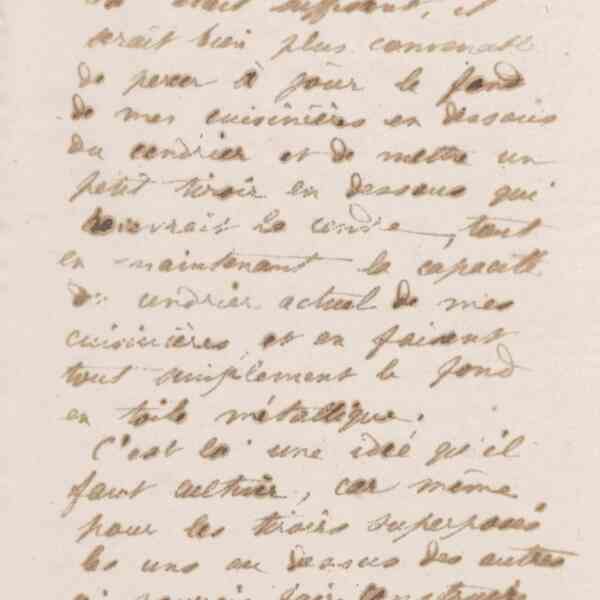 était suffisant, il
serait bien plus convenable
de percer à jour le fond
de mes cuisinières en dessous
du cendrier et de mettre un
petit tiroir en dessous qui
recevrait la cendre, tout
en maintenant la capacité
du cendrier actuel de mes
cuisinières, et en faisant
tout simplement le fond
en toile métallique.
C'est là une idée qu'il
faut cultiver, car même
pour les tiroirs superposés
les uns au dessus des autres
je pourrais faire construire